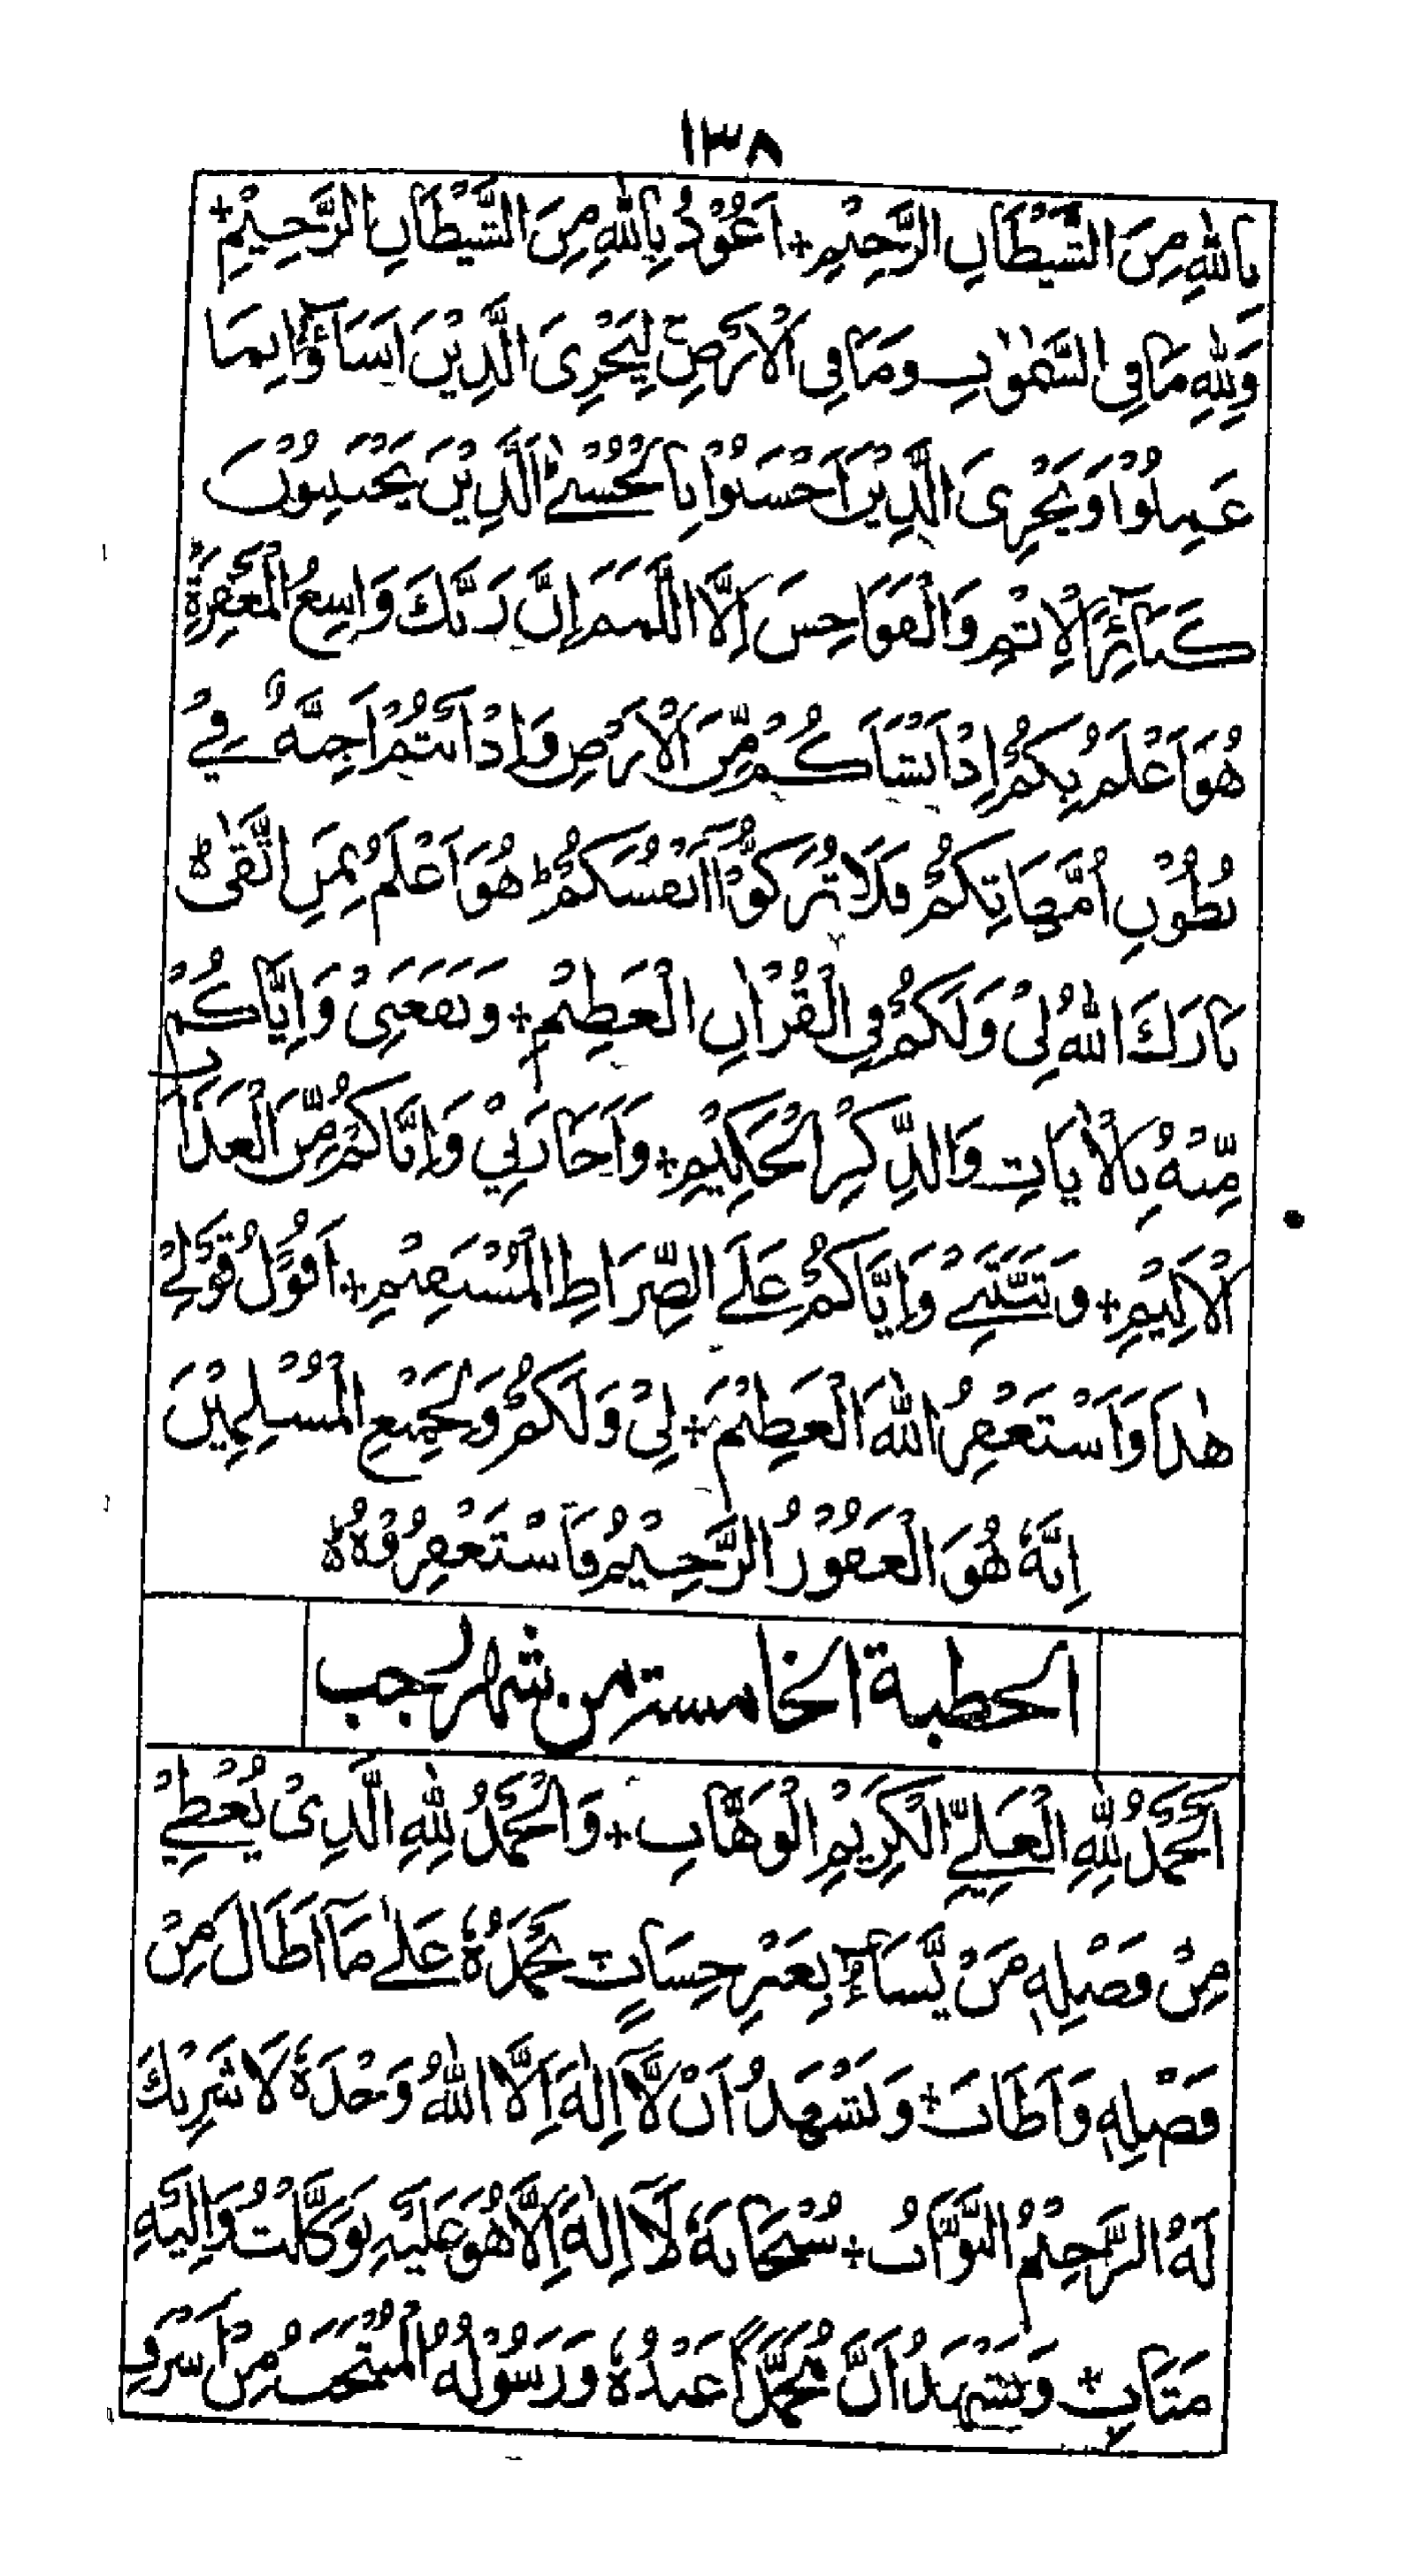 ١٣٨
بِاللّٰهِ مِنَ الشَّيْطَانِ الرَّجِيْمِ + اَعُوْذُ بِاللّٰهِ مِنَ الشَّيْطَانِ الرَّجِيْمِ +
وَلِلّٰهِ مَا فِي السَّمٰوٰتِ وَمَا فِي الْاَرْضِ لِيَجْزِىَ الَّذِيْنَ اَسَآؤُا بِمَا
عَمِلُوْا وَيَجْزِىَ الَّذِيْنَ اَحْسَنُوْا بِالْحُسْنٰے اَلَّذِيْنَ يَجْتَنِبُوْنَ
كَبَآئِرَ الْاِثْمِ وَالْفَوَاحِشَ اِلَّا اللَّمَمَ اِنَّ رَبَّكَ وَاسِعُ الْمَغْفِرَةِ
هُوَ اَعْلَمُ بِكُمْ اِذْ اَنْشَاَكُمْ مِّنَ الْاَرْضِ وَاِذْ اَنْتُمْ اَجِنَّةٌ فِيْ
بُطُوْنِ اُمَّهَاتِكُمْ فَلَا تُزَكُّوْآ اَنْفُسَكُمْ ط هُوَ اَعْلَمُ بِمَنِ اتَّقٰى ط
بَارَكَ اللّٰهُ لِىْ وَلَكُمْ فِى الْقُرْاٰنِ الْعَظِيْمِ + وَنَفَعَنِىْ وَاِيَّاكُمْ
مِّنْهُ بِالْاٰيَاتِ وَالذِّكْرِ الْحَكِيْمِ + وَاَجَارَنِيْ وَاِيَّاكُمْ مِّنَ الْعَذَابِ
الْاَلِيْمِ + وَثَبَّتَنِےْ وَاِيَّاكُمْ عَلَے الصِّرَاطِ الْمُسْتَقِيْمِ + اَقُوْلُ قَوْلِےْ
هٰذَا وَاَسْتَغْفِرُ اللّٰهَ الْعَظِيْمَ + لِىْ وَلَكُمْ وَلِجَمِيْعِ الْمُسْلِمِيْنَ
اِنَّهٗ هُوَ الْغَفُوْرُ الرَّحِيْمُ فَاسْتَغْفِرُوْهُ ط
الخطبة الخامسة من شهر رجب
اَلْحَمْدُ لِلّٰهِ الْعَلِےِّ الْكَرِيْمِ الْوَهَّابِ + وَالْحَمْدُ لِلّٰهِ الَّذِىْ يُعْطِےْ
مِنْ فَضْلِهٖ مَنْ يَّشَآءُ بِغَيْرِ حِسَابٍ نَحْمَدُهٗ عَلٰے مَآ اَطَالَ مِنْ
فَضْلِهٖ وَاَطَابَ + وَنَشْهَدُ اَنْ لَّآ اِلٰهَ اِلَّا اللّٰهُ وَحْدَهٗ لَا شَرِيْكَ
لَهُ الرَّحِيْمُ التَّوَّابُ + سُبْحَانَهٗ لَآ اِلٰهَ اِلَّا هُوَ عَلَيْهِ تَوَكَّلْتُ وَاِلَيْهِ
مَتَابِ + وَنَشْهَدُ اَنَّ مُحَمَّدًا عَبْدُهٗ وَرَسُوْلُهُ الْمُنْتَخَبُ مِنْ اَشْرَفِ